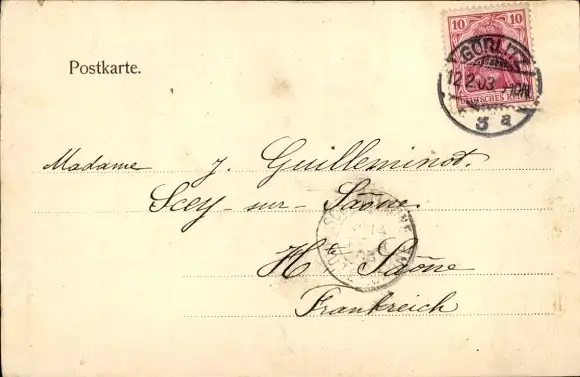 Postkarte.
10 10
DEUTSCHES REICH
GÖRLITZ
12.2.03.
3 a
Madame J. Guilleminot.
Scey-sur-Saône.
Hte Saône
Frankreich